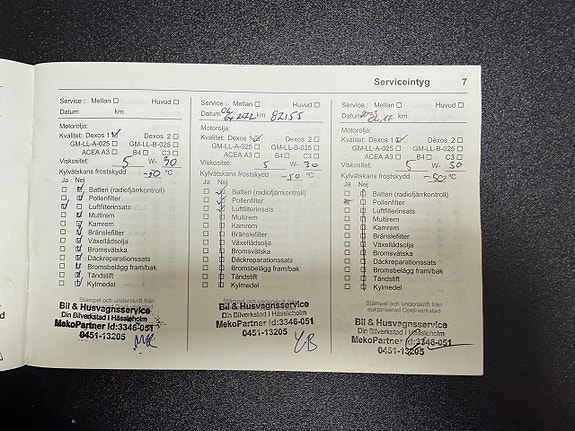 Serviceintyg 7
Service : Mellan Huvud
Datum km
Motorolja:
Kvalitet: Dexos 1 Dexos 2
GM-LL-A-025 GM-LL-B-025
ACEA A3 B4 C3
Viskositet: 5 W- 30
Kylvätskans frostskydd -50 °C
Ja Nej
Batteri (radiofjärrkontroll)
Pollenfilter
Luftfilterinsats
Multirem
Kamrem
Bränslefilter
Växellådsolja
Bromsvätska
Däckreparationssats
Bromsbelägg fram/bak
Tändstift
Kylmedel
Stämpel och underskrift från
Bil & Husvagnsservice
Din Bilverkstad i Hässleholm
MekoPartner Id:3346-051
0451-13205
Service : Mellan Huvud
Datum km 82155
Motorolja:
Kvalitet: Dexos 1 Dexos 2
GM-LL-A-025 GM-LL-B-025
ACEA A3 B4 C3
Viskositet: 5 W- 30
Kylvätskans frostskydd -50 °C
Ja Nej
Batteri (radiofjärrkontroll)
Pollenfilter
Luftfilterinsats
Multirem
Kamrem
Bränslefilter
Växellådsolja
Bromsvätska
Däckreparationssats
Bromsbelägg fram/bak
Tändstift
Kylmedel
Stämpel och underskrift från
Bil & Husvagnsservice
Din Bilverkstad i Hässleholm
MekoPartner Id:3346-051
0451-13205
Service : Mellan Huvud
Datum km
Motorolja:
Kvalitet: Dexos 1 Dexos 2
GM-LL-A-025 GM-LL-B-025
ACEA A3 B4 C3
Viskositet: 5 W- 30
Kylvätskans frostskydd -50 °C
Ja Nej
Batteri (radiofjärrkontroll)
Pollenfilter
Luftfilterinsats
Multirem
Kamrem
Bränslefilter
Växellådsolja
Bromsvätska
Däckreparationssats
Bromsbelägg fram/bak
Tändstift
Kylmedel
Stämpel och underskrift från
auktoriserad Opel-verkstad
Bil & Husvagnsservice
Din Bilverkstad i Hässleholm
MekoPartner Id:3346-051
0451-13205